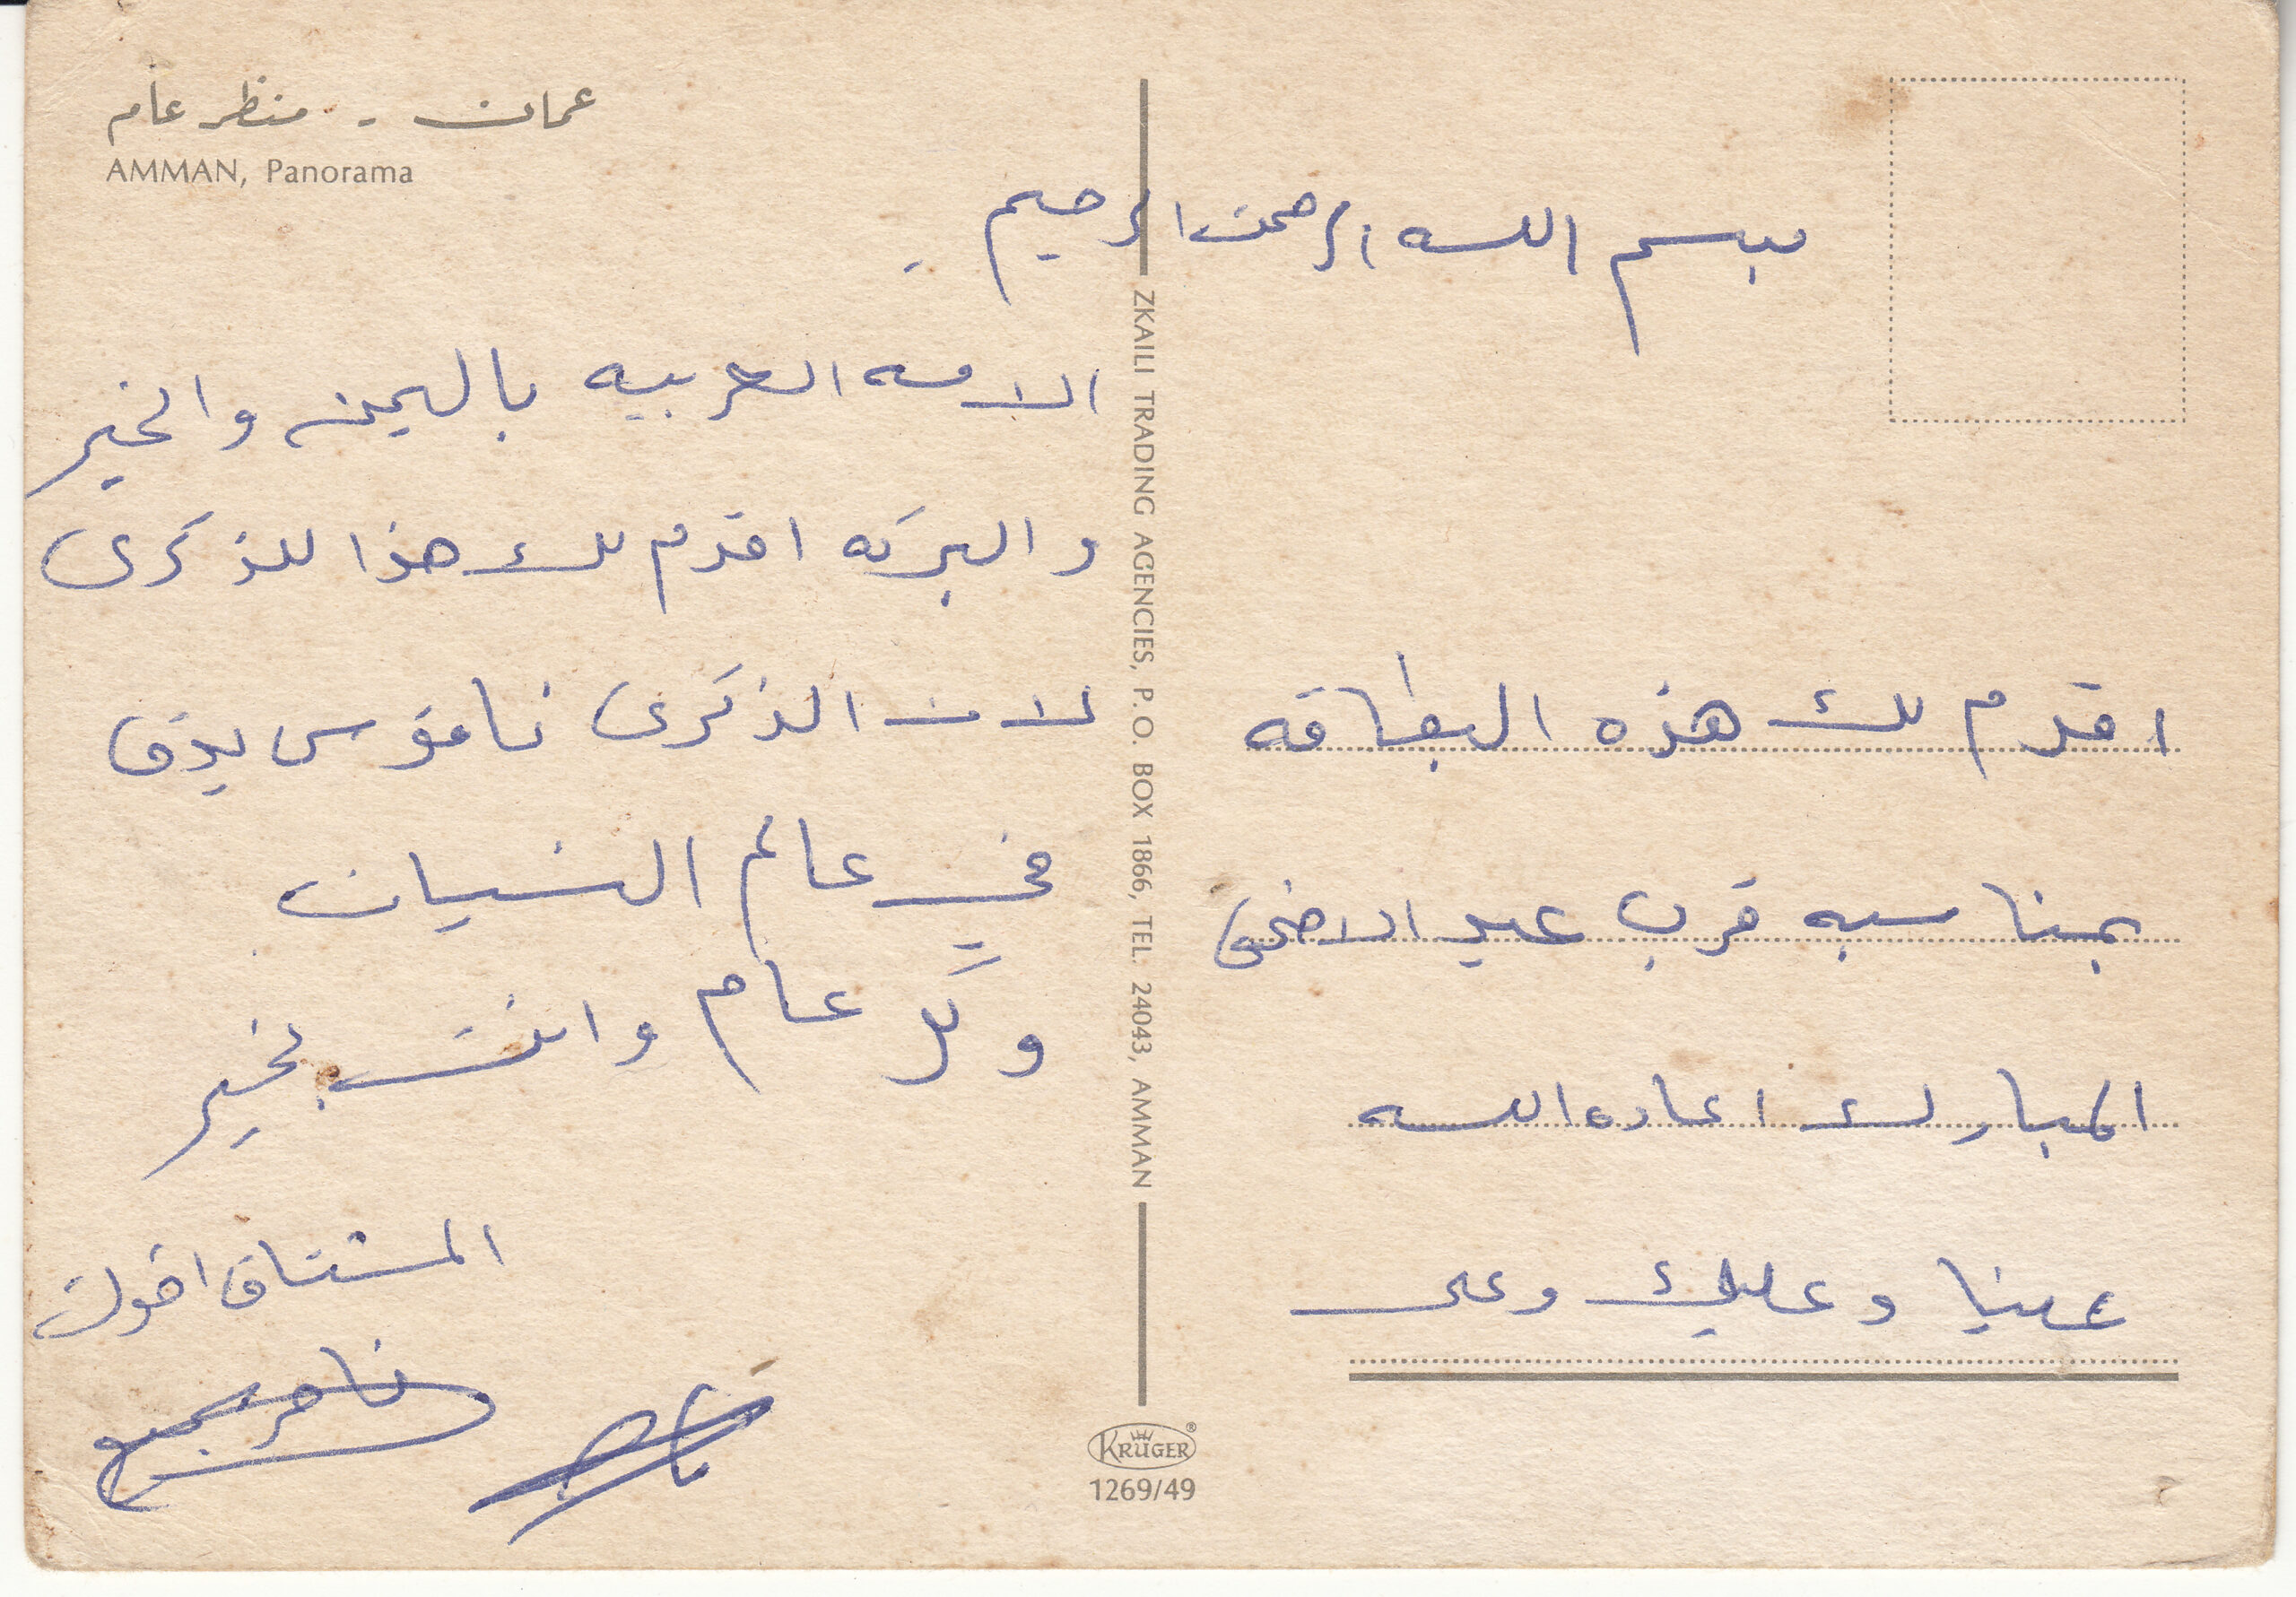 عمان - منظر عام
AMMAN, Panorama
بسم الله الرحمن الرحيم
اقدم لك هذه البطاقه
بمناسبه قرب عيد الاضحى
المبارك اعاده الله
علينا وعليك وعلى
الامه العربيه باليمن والخير
والبركه اقدم لك هذا للذكرى
لان الذكرى ناقوس يدق
في عالم النسيان
وكل عام وانت بخير
المشتاق اخوك
ZKAILI TRADING AGENCIES, P.O. BOX 1866, TEL. 24043, AMMAN
KRÜGER
1269/49